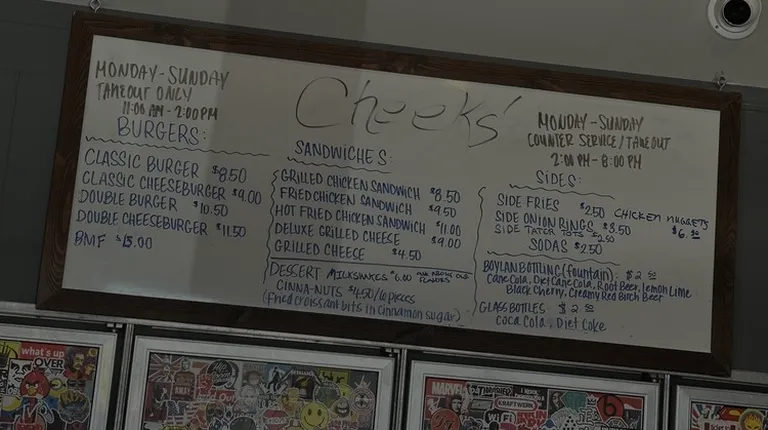 Cheeks'
MONDAY-SUNDAY
TAKEOUT ONLY
11:00 AM - 2:00 PM
BURGERS:
CLASSIC BURGER $8.50
CLASSIC CHEESEBURGER $9.00
DOUBLE BURGER $10.50
DOUBLE CHEESEBURGER $11.50
BMF $15.00
SANDWICHES:
GRILLED CHICKEN SANDWICH $8.50
FRIED CHICKEN SANDWICH $9.50
HOT FRIED CHICKEN SANDWICH $11.00
DELUXE GRILLED CHEESE $9.00
GRILLED CHEESE $4.50
DESSERT MILKSHAKES $6.00
CINNA-NUTS $4.50/10 pieces
(fried croissant bits in cinnamon sugar)
MONDAY-SUNDAY
COUNTER SERVICE/TAKEOUT
2:00 PM - 8:00 PM
SIDES:
SIDE FRIES $2.50 CHICKEN NUGGETS
SIDE ONION RINGS $3.50 $6.50
SIDE TATER TOTS $2.50
SODAS $2.50
BOYLAN BOTTLING (fountain): $2.50
Cane Cola, Diet Cane Cola, Root Beer, Lemon Lime
Black Cherry, Creamy Red Birch Beer
GLASS BOTTLES: $2.50
Coca Cola, Diet Coke
what's up
OVER
MARVEL
KRAFTWERK
WiFi